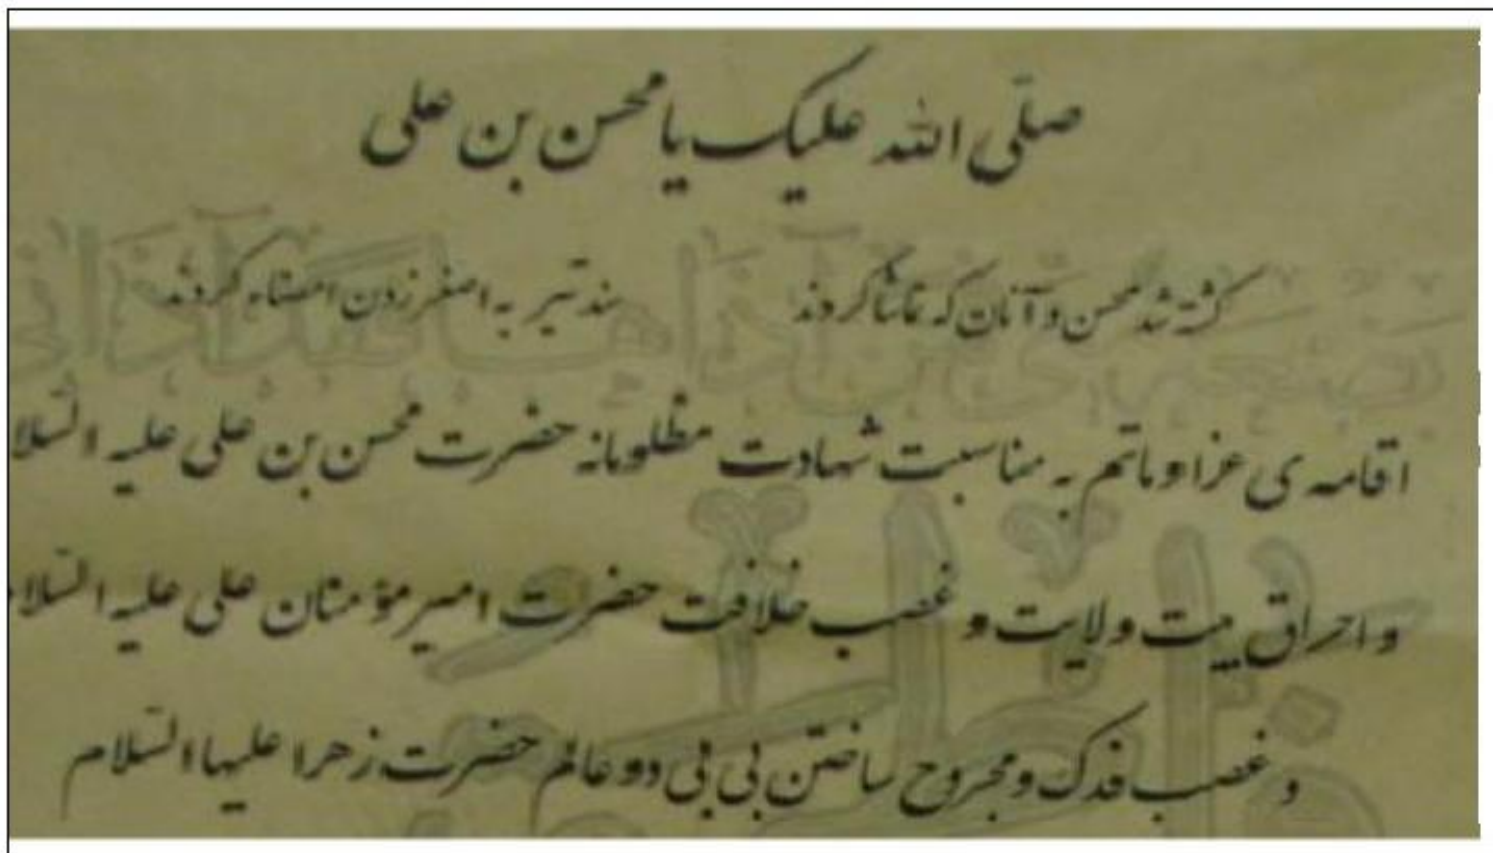 صلّی الله علیک یا محسن بن علی
کشته شد محسن و آنان که تماشا کردند سند تیر به اصغر زدن امضاء کردند
اقامه ی عزا و ماتم به مناسبت شهادت مظلومانه حضرت محسن بن علی علیه السّلا
و احراق بیت ولایت و غصب خلافت حضرت امیر مؤمنان علی علیه السّلا
و غصب فدک و مجروح ساختن بی بی دو عالم حضرت زهرا علیها السّلام